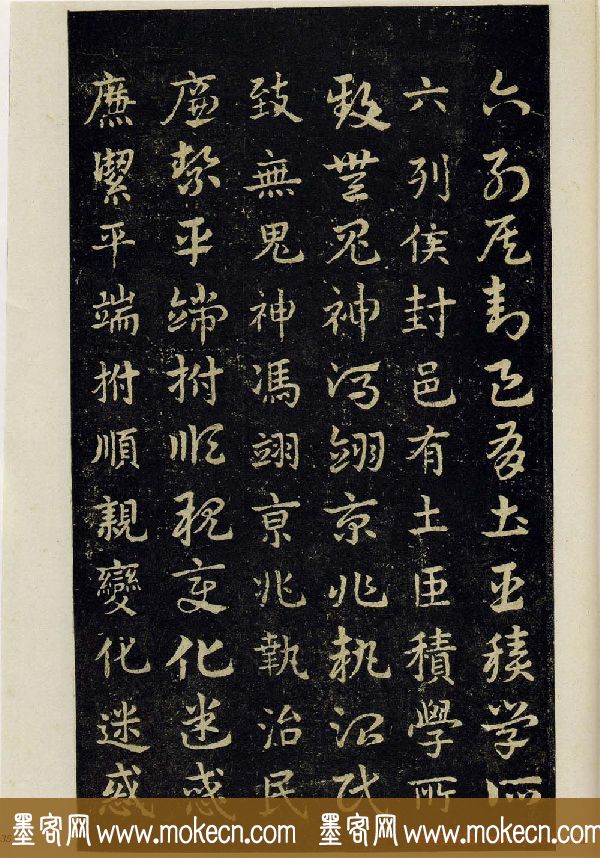 六列侯封邑有土臣積學所
六列侯封邑有土臣積學所
致無鬼神馮翊京兆執治民
致無鬼神馮翊京兆執治民
廉絜平端拊順親變化迷惑
廉潔平端拊順親變化迷惑
墨客网 www.mokecn.com 墨客网 www.mokecn.com